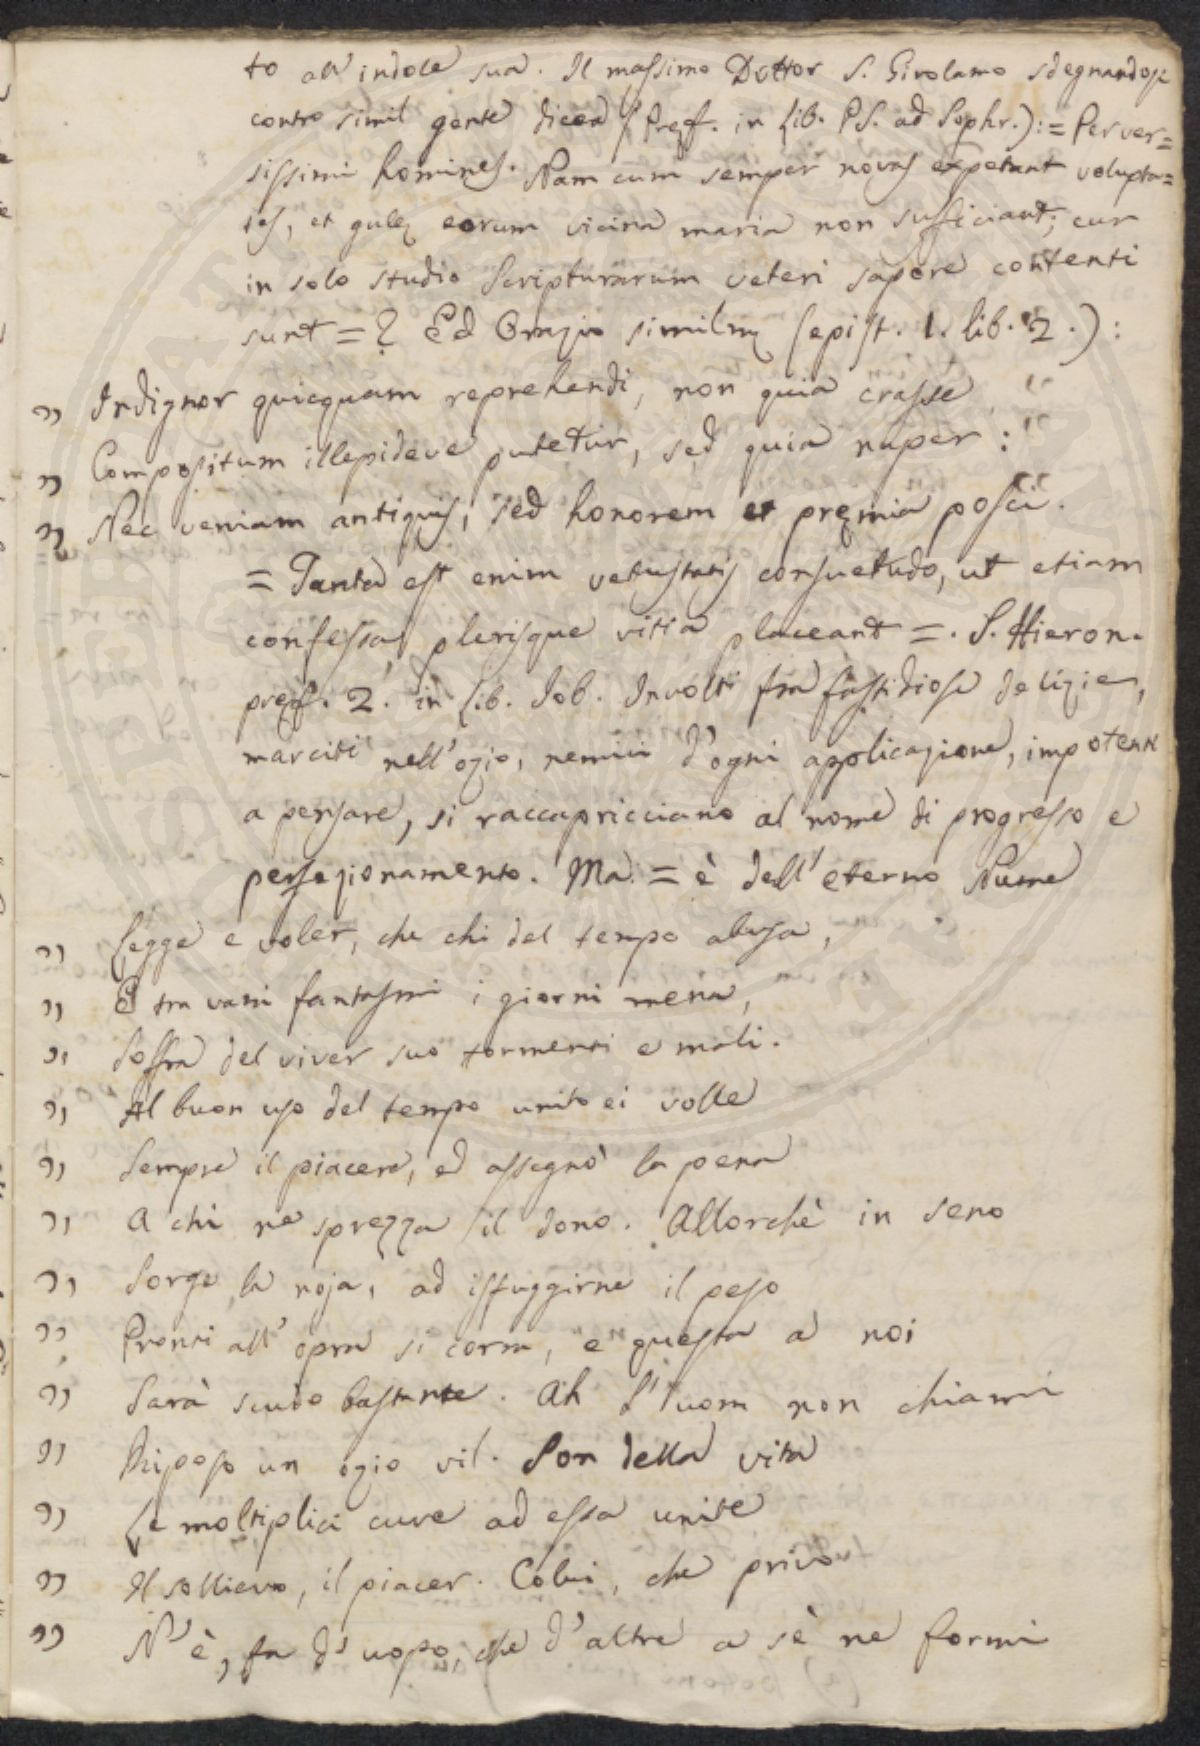 to all'indole sua. Il massimo Dottor S. Girolamo sdegnandosi
contro simil gente dicea (Pręf. in Lib. PS. ad Sophr.): = Perver=
sissimi homines. Nam cum semper novas expetant volupta=
tes, et gulę eorum vicina maria non sufficiant; cur
in solo studio Scripturarum veteri sapore contenti
sunt = ? Ed Orazio similmę (epist. 1. lib. 2.):
,, Indignor quicquam reprehendi, non quia crasse
,, Compositum illepideve putetur, sed quia nuper:
,, Nec veniam antiquis, sed honorem et pręmia posci.
= Tanta est enim vetustatis consuetudo, ut etiam
confessa plerisque vitia placeant =. S. Hieron.
pręf. 2. in Lib. Iob. Involti fra fastidiose delizie,
marciti nell'ozio, nemici d'ogni applicazione, impotenti
a pensare, si raccapricciano al nome di progresso e
perfezionamento. Ma = è dell'eterno Nume
,, Legge e voler, che chi del tempo abusa,
,, E tra vani fantasmi i giorni mena,
,, Soffra del viver suo tormenti e mali.
,, Al buon uso del tempo unito ei volle
,, Sempre il piacere, ed assegnò la pena
,, A chi ne sprezza il dono. Allorchè in seno
,, Sorge la noja, ad isfuggirne il peso
,, Pronti all'opra si corra, e questa a noi
,, Sarà scudo bastante. Ah l'uom non chiami
,, Riposo un ozio vil. Son della vita
,, Le moltiplici cure ad essa unite
,, Il sollievo, il piacer. Colui, che privo
,, N'è, fa d'uopo, che d'altre a sè ne formi